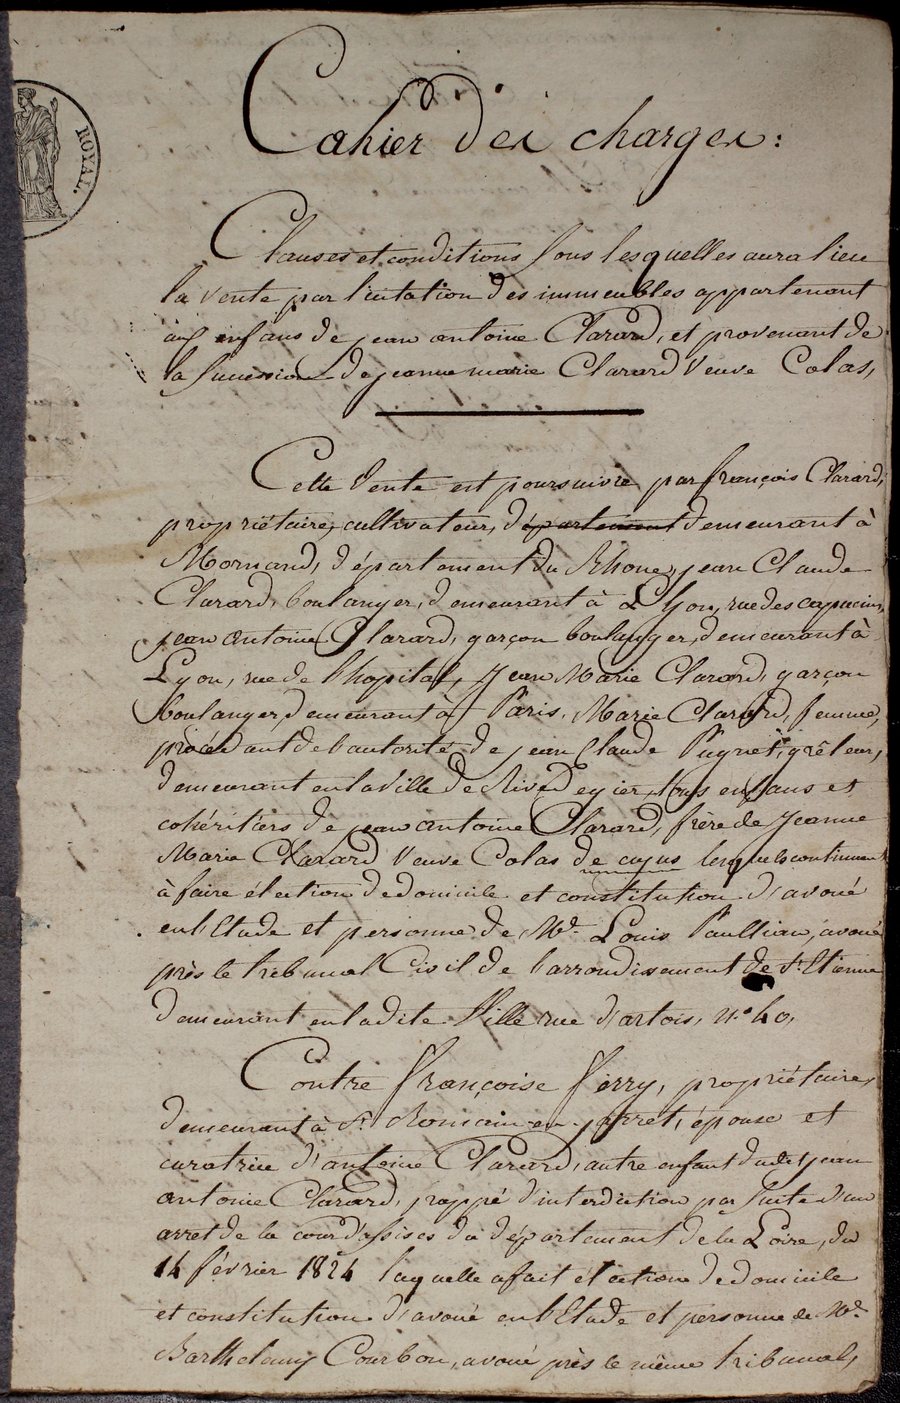 ROYAL.
Cahier des charges:
Clauses et conditions sous lesquelles aura lieu
la vente par licitation des immeubles appartenant
aux enfans de jean antoine Clarard, et provenant de
la succession de jeanne marie Clarard Veuve Colas,
Cette Vente est poursuivie par françois Clarard,
propriétaire, cultivateur, département demeurant à
Mornand, département du Rhone, jean Claude
Clarard, boulanger, demeurant à Lyon, rue des capucins,
jean antoine Clarard, garçon boulanger, demeurant à
Lyon, rue de l'hopital, Jean Marie Clarard, garçon
boulanger, demeurant à Paris, Marie Clarard, femme,
procédant de l'autorité de jean Claude Pugnet, grêleur,
demeurant en la Ville de Rive de gier, tous enfans et
cohéritiers de jean antoine Clarard, frère de Jeanne
Marie Clarard Veuve Colas de cujus lesquels continuent
à faire élection de domicile et constitution d'avoué
en l'Etude et personne de Me. Louis Paullian, avoué
près le tribunal Civil de l'arrondissement de St. Etienne
demeurant en ladite Ville rue d'artois, n.o 40,
Contre françoise ferry, propriétaire,
demeurant à St. Romain-en-jarret, épouse et
curatrice d'antoine Clarard, autre enfant dudit jean
antoine Clarard, frappé d'interdiction par suite d'un
arret de la cour d'assises du département de la Loire, du
14 février 1824 laquelle a fait élection de domicile
et constitution d'avoué en l'Etude et personne de Me.
Barthelemy Courbon, avoué près le même tribunal,